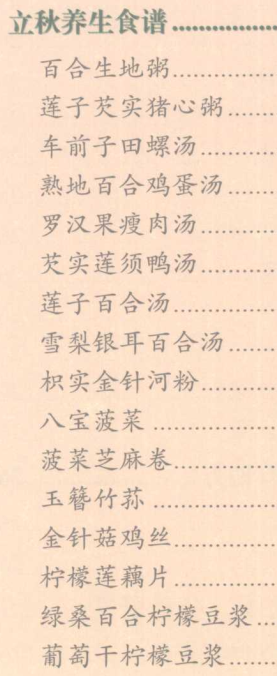 立秋养生食谱
百合生地粥
莲子芡实猪心粥
车前子田螺汤
熟地百合鸡蛋汤
罗汉果瘦肉汤
芡实莲须鸭汤
莲子百合汤
雪梨银耳百合汤
枳实金针河粉
八宝菠菜
菠菜芝麻卷
玉簪竹荪
金针菇鸡丝
柠檬莲藕片
绿桑百合柠檬豆浆
葡萄干柠檬豆浆